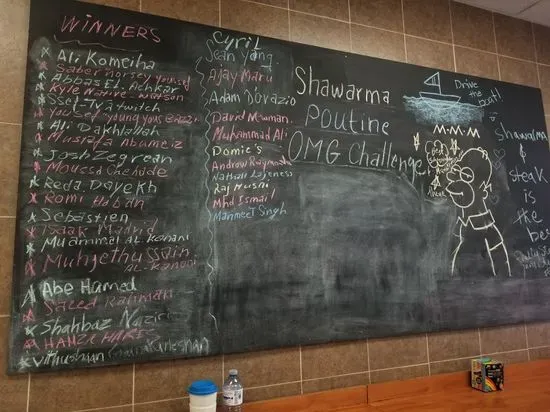 WINNERS
Ali Komeiha
Saber norsey yousef
Abbas El Achkar
Kyle Native Watson
Sset-Tv a twitch
Yousef "young yous
Ali Dakhlallah
Mustafa Abumeiz
Josh Zegrean
Moussa Chehade
Reda Dayekh
Romi Hoban
Sebastien
Isaak Madrid
Muammal AL-Kanani
Muhjethussain
AL-Kanani
Abe Hamed
Saeed Rahman
Shahbaz Naziri
HAMZA
Vithushaan
Cyril
Sean Yang
Ajay Maru
Adam D'orazio
David Newman
Muhammad Ali
Domic's
Andrew Raymond
Nathan
Raj Husni
Mhd Ismail
Manmeet Singh
Shawarma
Poutine
OMG Challenge
Drive
the
boat!
M-M-M
Shawarma
&
steak
is
the
best